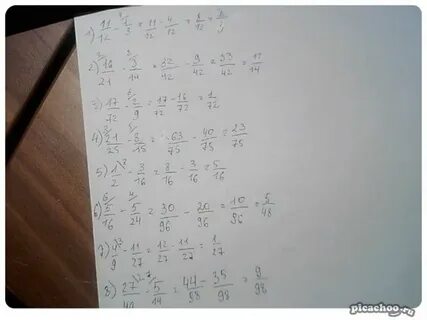 1) 11/12 - 1/3 = 11/12 - 4/12 =
2) 16/21 - 3/14 = 32/42 - 9/42 = 33/42 = 11/14
3) 17/72 - 2/9 = 17/72 - 16/72 = 1/72
4) 21/25 - 8/15 = 63/75 - 40/75 = 23/75
5) 1/2 - 3/16 = 8/16 - 3/16 = 5/16
6) 5/16 - 5/24 = 30/96 - 20/96 = 10/96 = 5/48
7) 4/9 - 11/27 = 12/27 - 11/27 = 1/27
8) 27 - 5/14 = 44/98 - 35/98 = 9/98
picachoo.ru